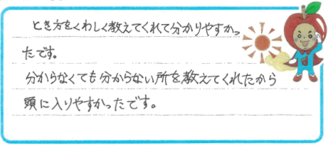 とき方をくわしく教えてくれて分かりやすかっ
たです。
分からなくても分からない所を教えてくれたから
頭に入りやすかったです。